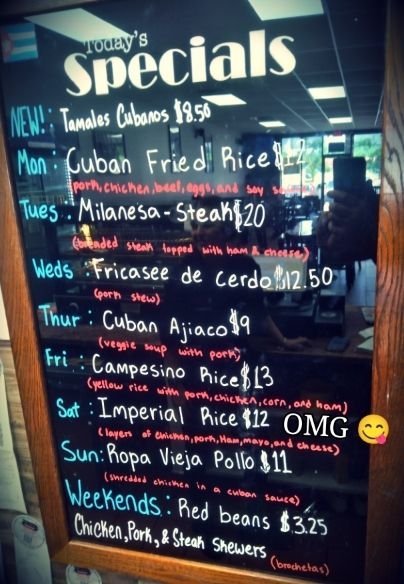 Today's
Specials
NEW!: Tamales Cubanos $8.50
Mon: Cuban Fried Rice $12
(pork, chicken, beef, eggs, and soy
Tues: Milanesa-Steak $20
(breaded steak topped with ham & cheese)
Weds: Fricasee de Cerdo $12.50
(pork stew)
Thur: Cuban Ajiaco $9
(veggie soup with pork)
Fri: Campesino Rice $13
(yellow rice with pork, chicken, corn, and ham)
Sat: Imperial Rice $12 OMG 😋
(layers of chicken, pork, Ham, mayo, and cheese)
Sun: Ropa Vieja Pollo $11
(shredded chicken in a cuban sauce)
Weekends: Red beans $3.25
Chicken, Pork, & Steak Skewers
(brochetas)